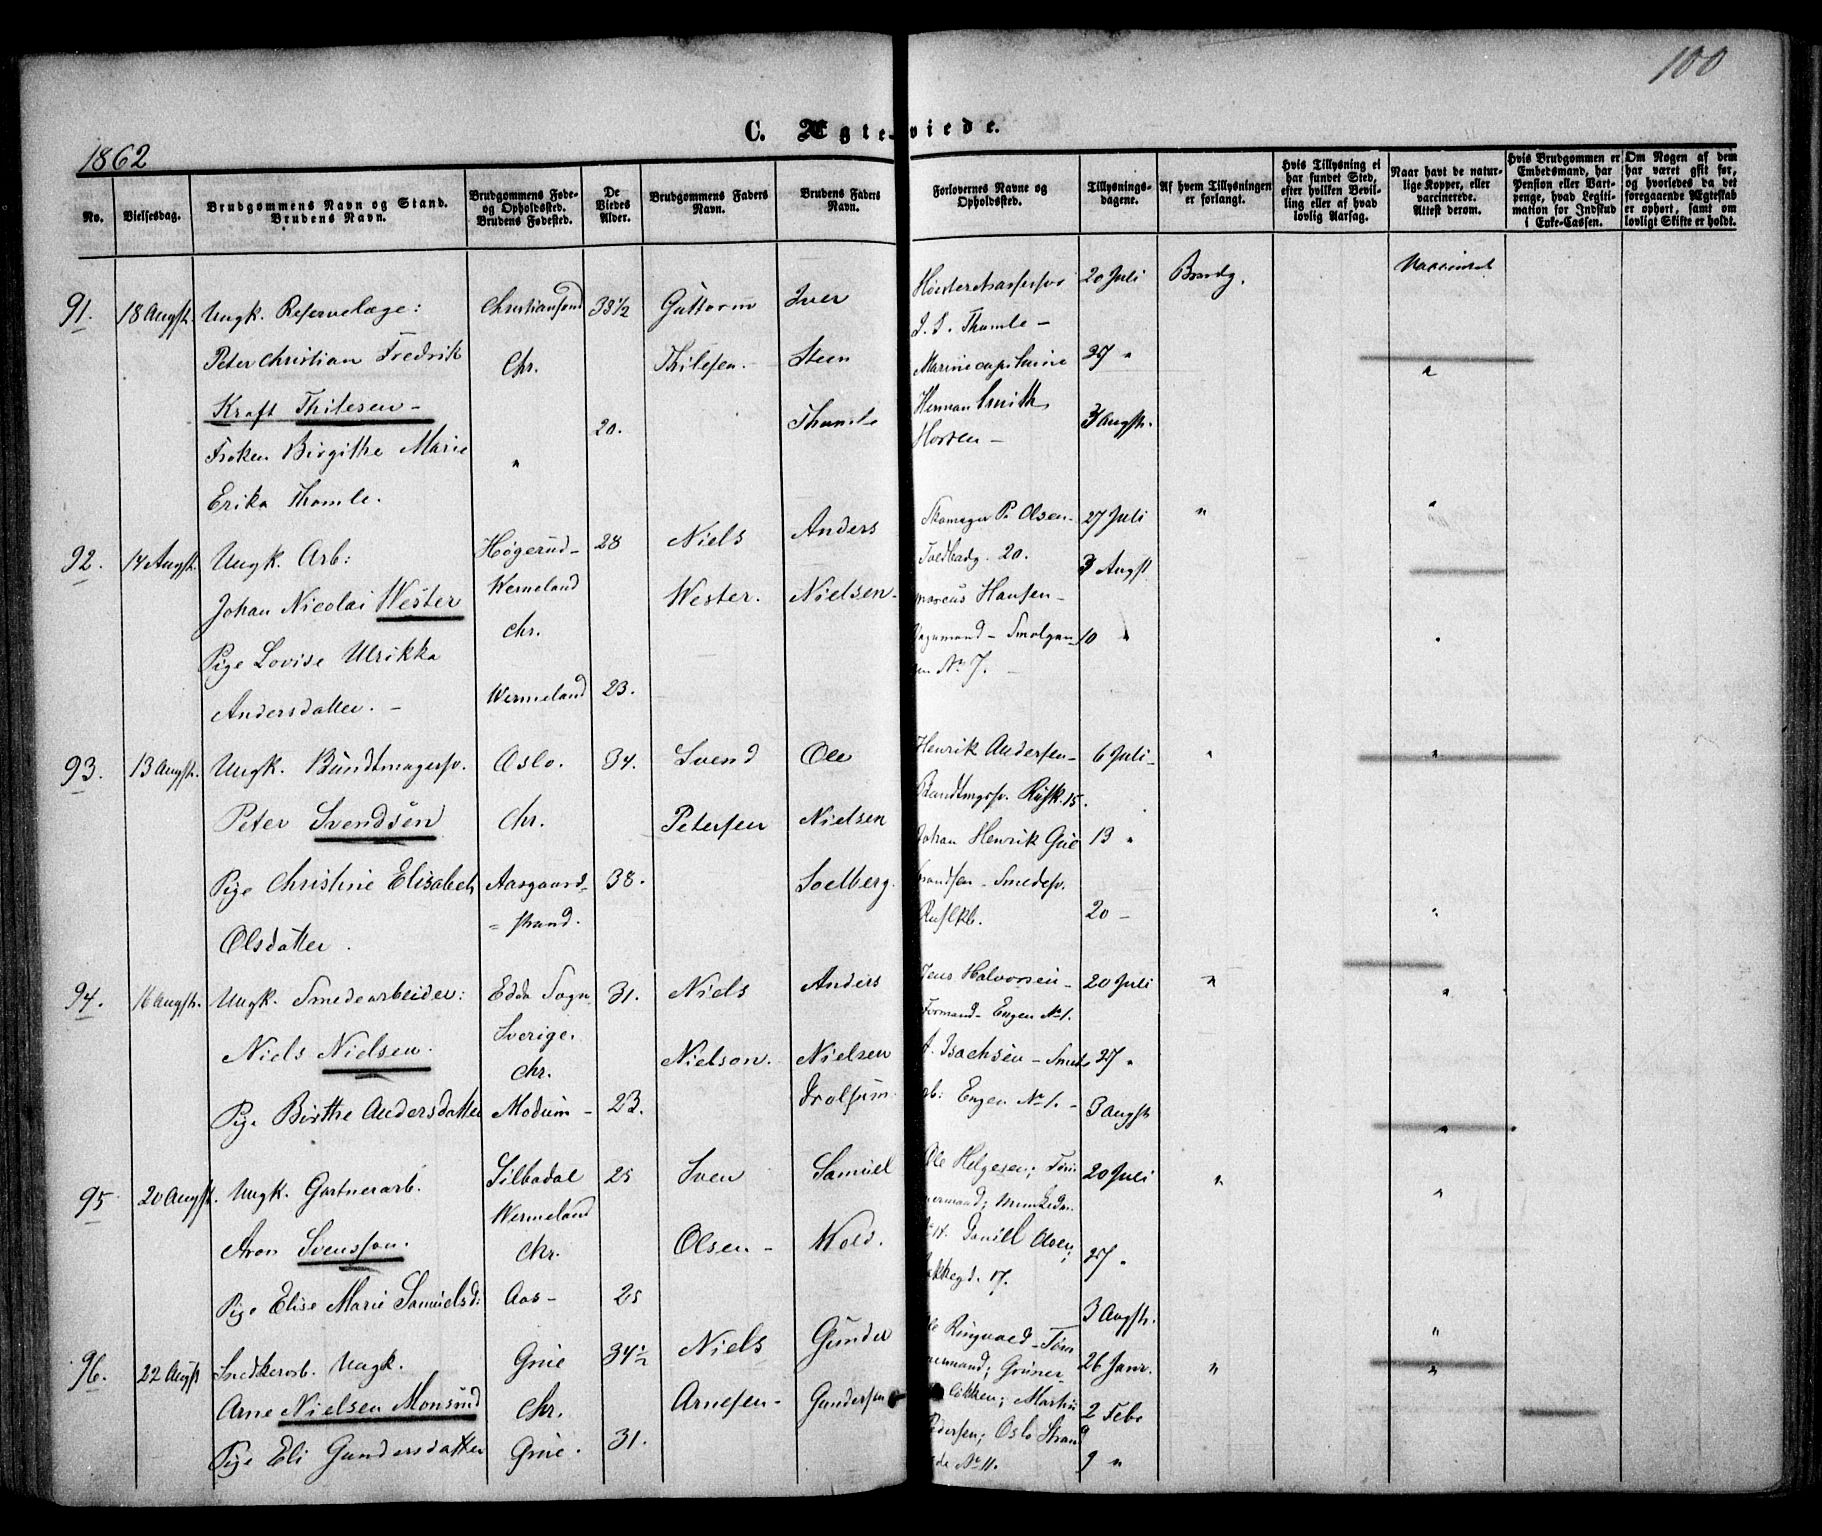 100
C. Ægteviede.
1862
No.
Vielsesdag.
Brudgommens Navn og Stand.
Brudens Navn.
Brudgommens Føde-
og Opholdssted.
Brudens Fødested.
De
Viedes
Alder.
Brudgommens Faders
Navn.
Brudens Faders
Navn.
Forlovernes Navne og
Opholdssted.
Tillysnings-
dagene.
Af hvem Tillysningen
er forlangt.
Hvis Tillysning ei
har fundet Sted,
efter hvilken Bevil-
ling eller af hvad
lovlig Aarsag.
Naar havt de natur-
lige Kopper, eller
vaccinerede.
Attest derom.
Hvis Brudgommen er
Embedsmand, har
Pension eller Vart-
penge, hvad Legiti-
mation for Indskud
i Enke-Cassen.
Om Nogen af dem
har været gift før,
og hvorledes da det
foregaaende Ægteskab
er ophørt, samt om
lovligt Skifte er holdt.
91.
18 Augst.
Ungk. Reservelæge:
Peter Christian Fredrik
Kraft Thilesen -
Frøken Birgithe Marie
Erika Thomle.
Christiansund
Chr.
"
33 1/2
20.
Guttorm
Thilesen.
Iver
Steen
Thomle
J. S. Thomle -
Marinecapitaine
Herman Smith
Horten -
20 Juli
27 "
3 Augst.
Brudg.
Vaccineret
"
92.
14 Augst.
Ungk. Arb:
Johan Nicolai Wester
Pige Lovise Ulrikka
Andersdatter. -
Høgerud -
Wermeland
Chr.
Wermeland
28
23.
Niels
Wester.
Anders
Nielsen.
Skomager P. Olsen -
Toldbodg. 20.
Marcus Hansen -
Vognmand - Smalgan-
gen No 7. -
27 Juli
3 Augst
10 "
"
"
"
93.
13 Augst.
Ungk. Bundtmagersv.
Peter Svendsen
Pige Christine Elisabeth
Olsdatter.
Oslo.
Chr.
Aasgaard-
= strand.
34.
38.
Svend
Petersen
Ole
Nielsen
Soelberg.
Henrik Andersen -
Johan Henrik
Smedesv.
6 Juli -
13 "
20 -
"
"
"
94.
16 Augst.
Ungk. Smedearbeider:
Niels Nielsen.
Pige Birthe Andersdatter
Edda Sogn
Sverige.
Chr.
Modum -
31.
23.
Niels
Nielson.
Anders
Nielsen
Jens Halvorsen -
Formand - Engen No 1.
A. Isachsen - Smede
arb: Engen No 1. -
20 Juli
27 "
3 Augst
"
"
"
95.
20 Augst.
Ungk. Gartnerarb.
Aron Svensson.
Pige Elise Marie Samuelsd:
Silbodal
Wermeland
Chr.
Aas -
25
25
Sven
Olsen -
Samuel
Kold.
Ole Helgesen; Tøm
mermand; Munkedam
No 14. Daniel Olsen;
Bakkegd. 17.
20 Juli
27 "
3 Augst.
"
"
"
96.
22 Augst
Snedkerarb. Ungk.
Arne Nielsen Monsrud
Pige Eli Gundersdatter
Grue
Chr.
Grue.
34 1/2
31.
Niels
Arnesen -
Gunder
Gundersen
Ole Ringvold - Tøm
mermand; Grüner
løkken; Martin
Pedersen; Oslo Strand
gade No 11.
26 Janr.
2 Febr
9 "
"
"